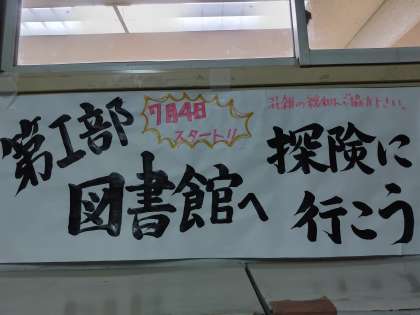 第I部
7月4日
スタート!!
図書館へ
探険に
行こう